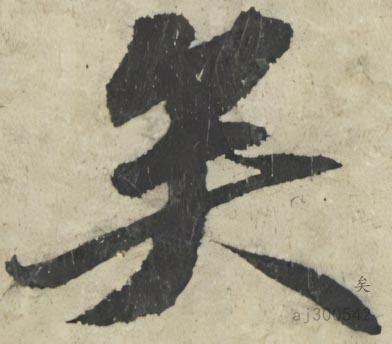 矣
矣
aj300542